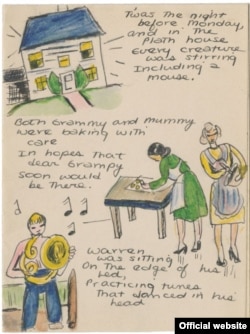 'Twas the night
before Monday,
and in the
Plath house
Every creature
was stirring
Including a
mouse.
Both Grammy and Mummy
were baking with
care
In hopes that
dear Grampy
soon would
be there.
Warren
was sitting
On the edge of his
bed,
Practicing tunes
That danced in his
head
Official website